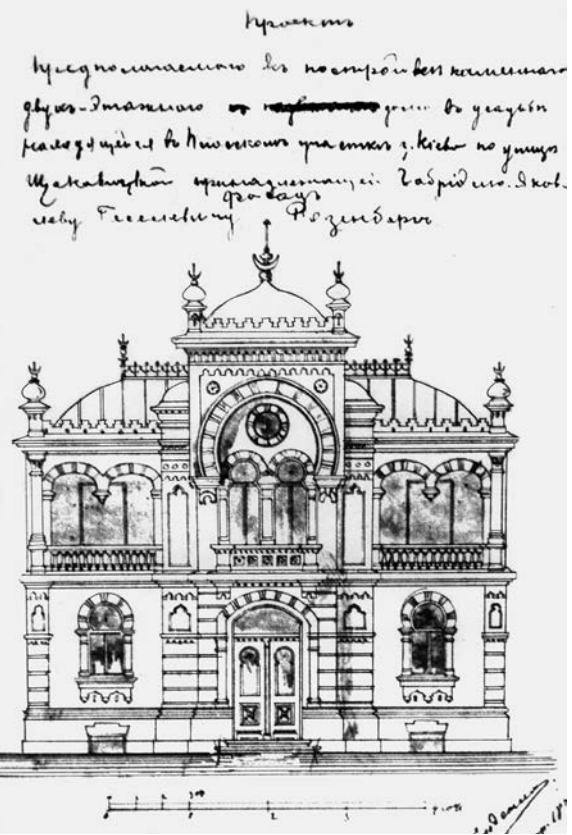 Проектъ
предполагаемаго къ постройкѣ каменнаго
двухъ-этажнаго дома въ усадьбѣ
находящейся въ участкѣ г. Кіева по улицѣ
Щекавицкой принадлежащей Габріелю-Яков-
Фасадъ
леву Геселевичу Розенбергъ
0 1 2 3